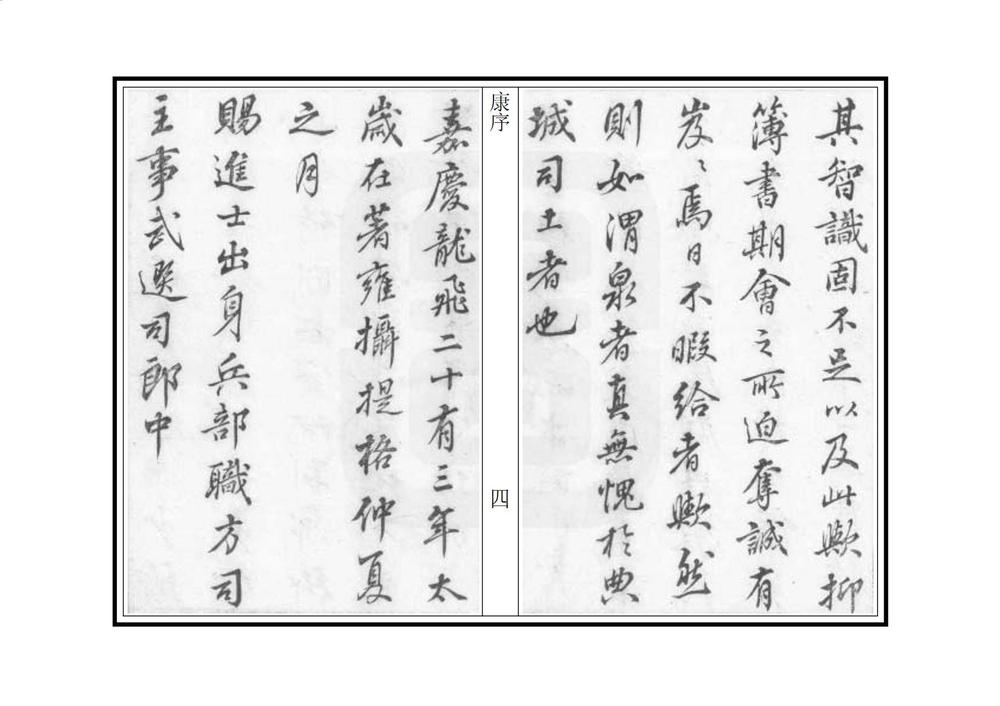 其智識固不足以及此歟抑
簿書期會之所迫奪誠有
岌〻焉日不暇給者歟然
則如渭泉者真無愧於典
城司土者也
康序
四
嘉慶龍飛二十有三年太
歲在著雍攝提格仲夏
之月
賜進士出身兵部職方司
主事武選司郎中